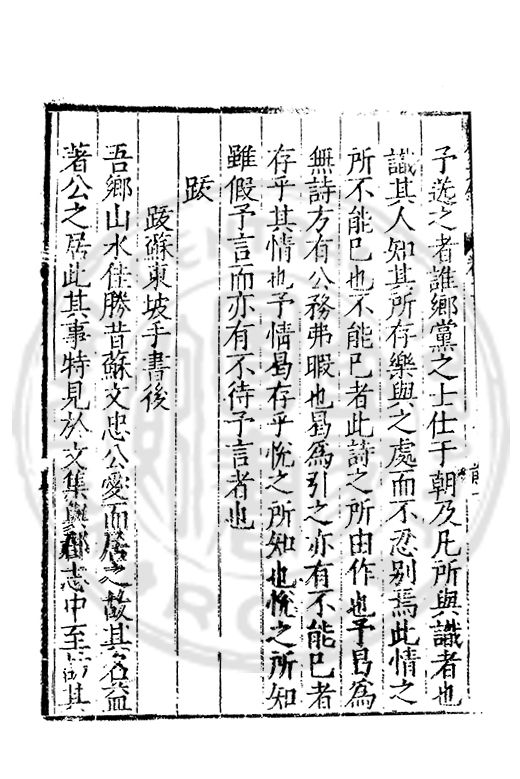 予送之者誰鄉黨之士仕于朝及凡所與識者也
識其人知其所存樂與之處而不忍别焉此情之
所不能已也不能已者此詩之所由作也予曷爲
無詩方有公務弗暇也曷爲引之亦有不能已者
存乎其情也予情曷存乎恱之所知也恱之所知
雖假予言而亦有不待予言者也
跋
跋蘇東坡手書後
吾鄉山水佳勝昔蘇文忠公愛而居之故其名益
著公之居此其事特見於文集與郡志中至於其